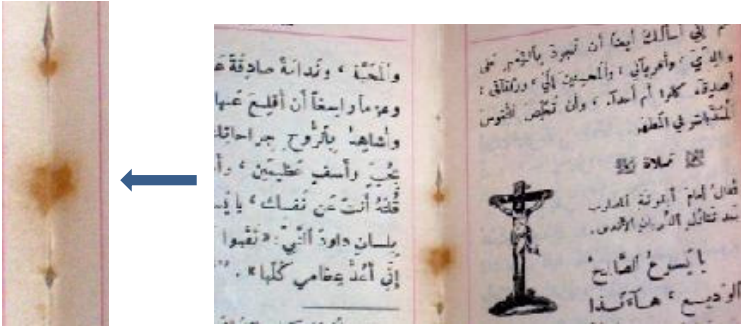 إني أسألك أيضًا أن تجود بالخير على
والديّ ، وأقربائي ، والمحسنين إليّ ، ورفقائي ،
أصدقاء كانوا أم أعداء ، وأن تخلّص النفوس
في المطهر
صلاة
تقال أمام أيقونة المصلوب
بعد تناول القربان الأقدس.
يا يسوع الصالح
الوديع ، هاءنذا
والمحبّة ، وندامة صادقة
وعزما راسخًا أن أقلع عنها
وأشاهد بالروح جراحاتك
بحبّ وأسف عظيمين ،
قلته أنت عن نفسك ، يا
بلسان داود النبيّ : «ثقبوا
إني أعدّ عظامي كلّها» .